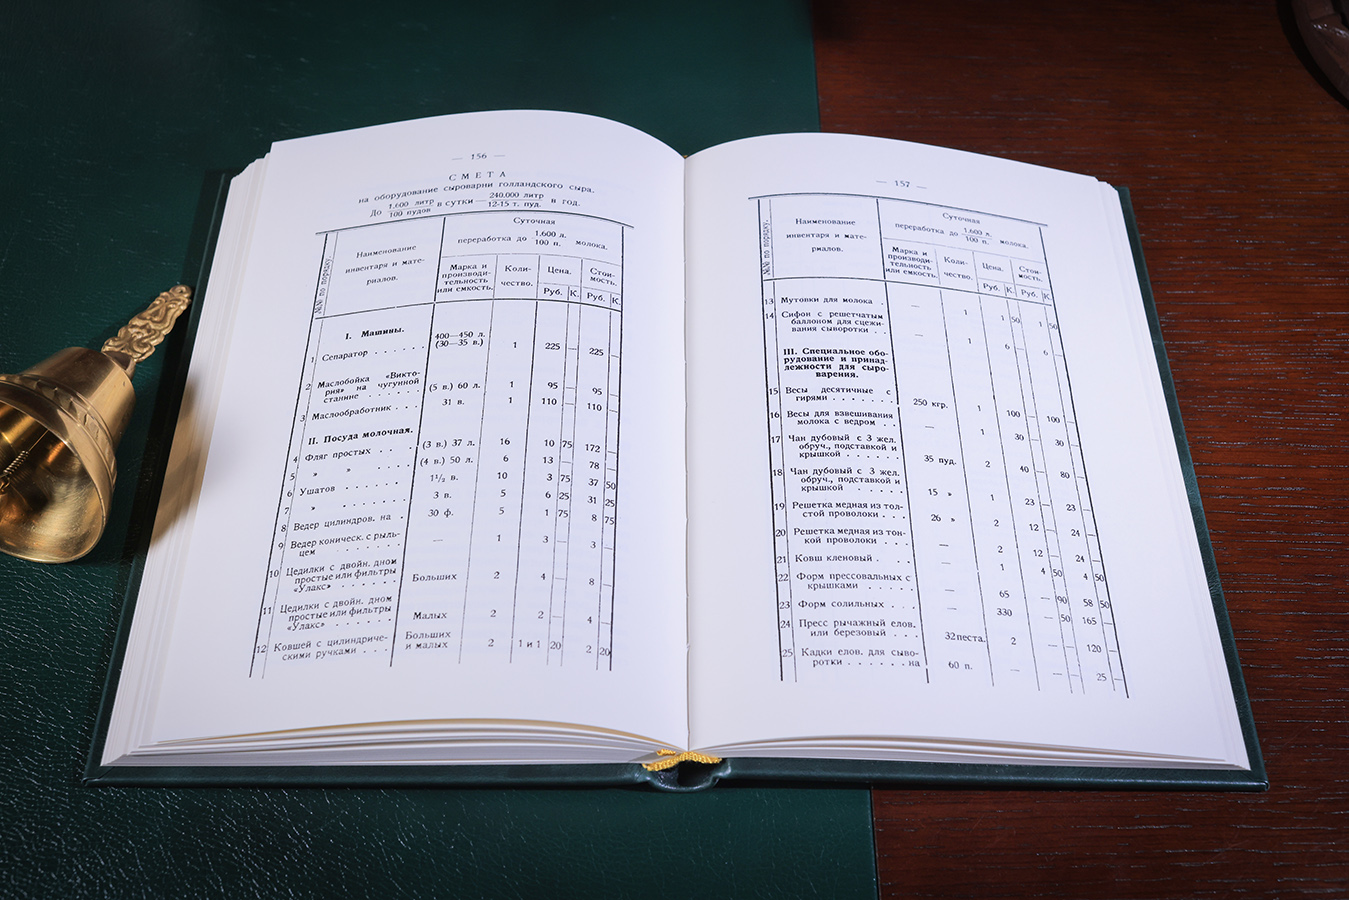 — 156 —
СМЕТА
на оборудование сыроварни голландского сыра.
До 1.600 литр / 100 пудов в сутки — 240.000 литр / 12-15 т. пуд. в год.
№№ по порядку.
Наименование
инвентаря и мате-
риалов.
Суточная
переработка до 1.600 л. / 100 п. молока.
Марка и
производи-
тельность
или емкость.
Коли-
чество.
Цена.
Стои-
мость.
Руб. К. Руб. К.
I. Машины.
1 Сепаратор . . . . . . 400—450 л. (30—35 в.) 1 225 — 225 —
2 Маслобойка «Викто-
рия» на чугунной
станине . . . . . . . (5 в.) 60 л. 1 95 — 95 —
3 Маслообработник . . . 31 в. 1 110 — 110 —
II. Посуда молочная.
4 Фляг простых . . . (3 в.) 37 л. 16 10 75 172 —
5 » » . . . . (4 в.) 50 л. 6 13 — 78 —
6 Ушатов . . . . . . . 1½ в. 10 3 75 37 50
7 » . . . . . . . 3 в. 5 6 25 31 25
8 Ведер цилиндров. на . 30 ф. 5 1 75 8 75
9 Ведер коническ. с рыль-
цем . . . . . . . — 1 3 — 3 —
10 Цедилки с двойн. дном
простые или фильтры
«Улакс» . . . . . . Больших 2 4 — 8 —
11 Цедилки с двойн. дном
простые или фильтры
«Улакс» . . . . . . Малых 2 2 — 4 —
12 Ковшей с цилиндриче-
скими ручками . . . Больших и малых 2 1 и 1 20 2 20
— 157 —
№№ по порядку.
Наименование
инвентаря и мате-
риалов.
Суточная
переработка до 1.600 л. / 100 п. молока.
Марка и
производи-
тельность
или емкость.
Коли-
чество.
Цена.
Стои-
мость.
Руб. К. Руб. К.
13 Мутовки для молока . — 1 1 50 1 50
14 Сифон с решетчатым
баллоном для сцежи-
вания сыворотки . . — 1 6 — 6 —
III. Специальное обо-
рудование и принад-
лежности для сыро-
варения.
15 Весы десятичные с
гирями . . . . . . . 250 кгр. 1 100 — 100 —
16 Весы для взвешивания
молока с ведром . . — 1 30 — 30 —
17 Чан дубовый с 3 жел.
обруч., подставкой и
крышкой . . . . . . 35 пуд. 2 40 — 80 —
18 Чан дубовый с 3 жел.
обруч., подставкой и
крышкой . . . . . 15 » 1 23 — 23 —
19 Решетка медная из тол-
стой проволоки . . . 26 » 2 12 — 24 —
20 Решетка медная из тон-
кой проволоки . . . — 2 12 — 24 —
21 Ковш кленовый . — 1 4 50 4 50
22 Форм прессовальных с
крышками . . . . . — 65 — 90 58 50
23 Форм солильных . . . — 330 — 50 165 —
24 Пресс рычажный елов.
или березовый . . . 32 песта. 2 — — 120 —
25 Кадки елов. для сыво-
ротки . . . . . . на 60 п. — — — 25 —